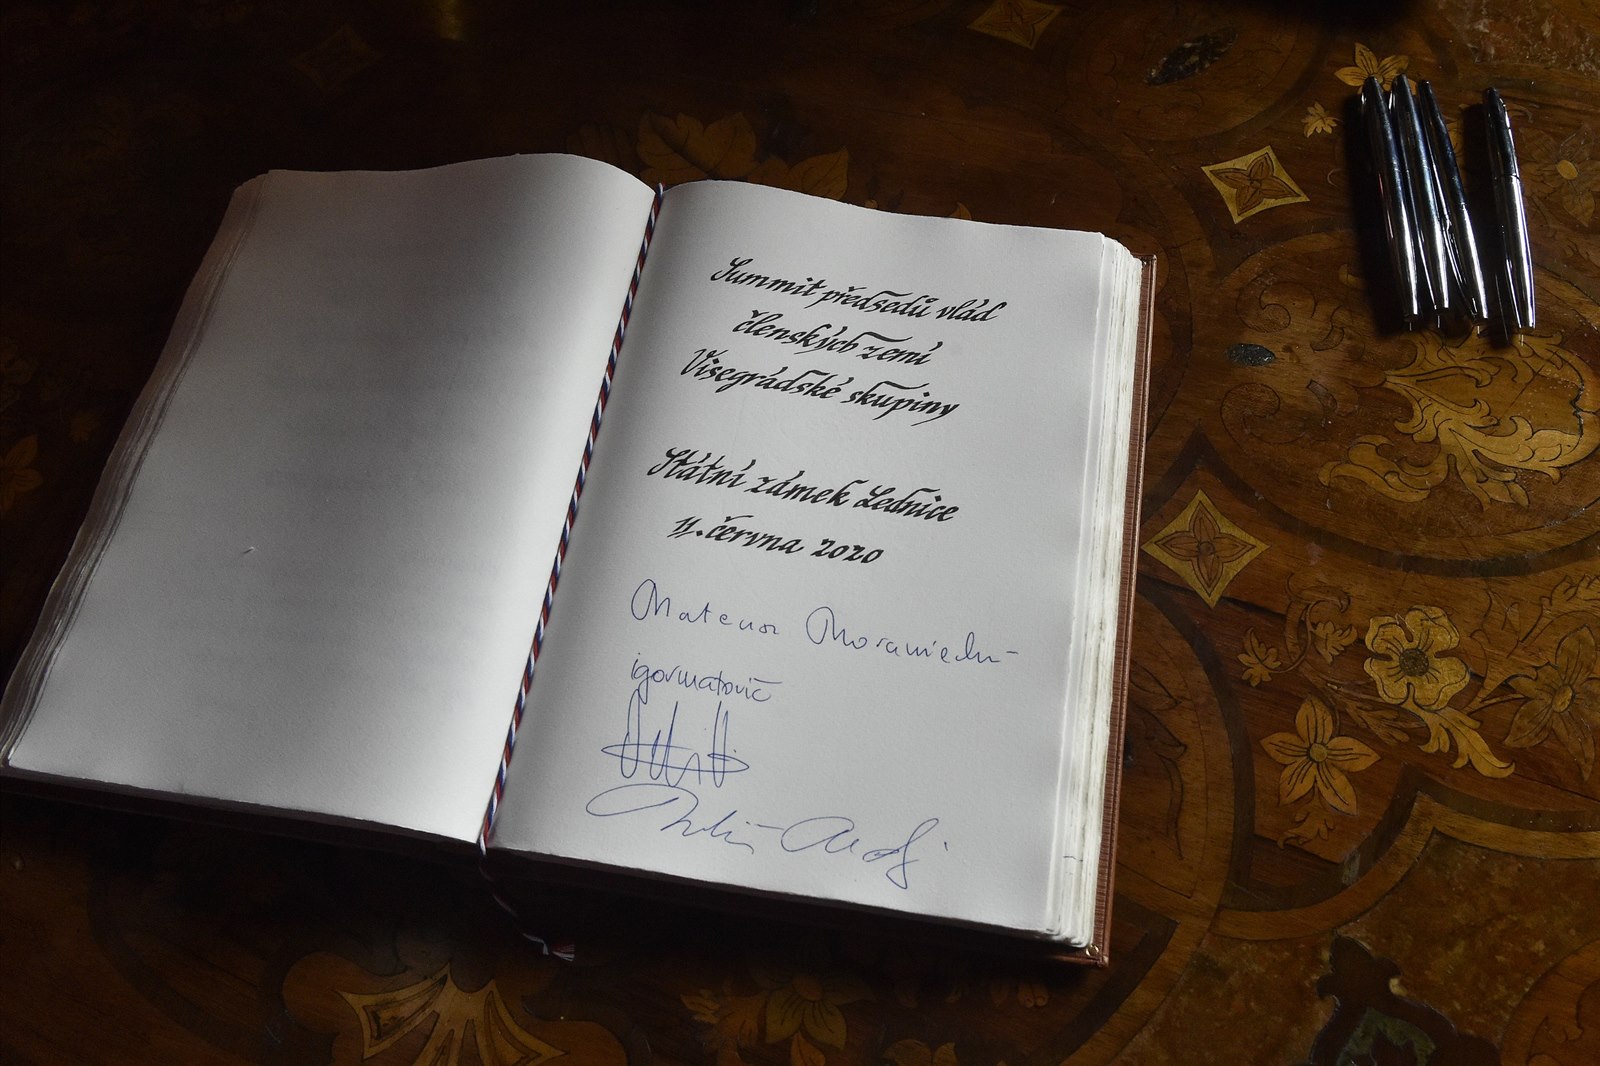 Summit předsedů vlád
členských zemí
Visegrádské skupiny
Státní zámek Lednice
11. června 2020
Mateusz Morawiecki
igormatovič